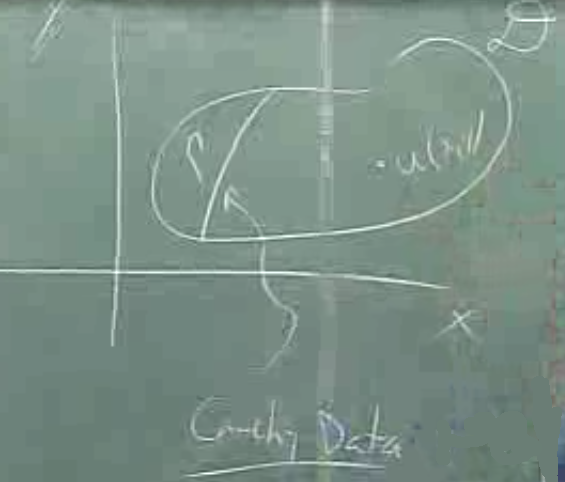 y
D
Γ
.u(x,y)
x
Cauchy Data